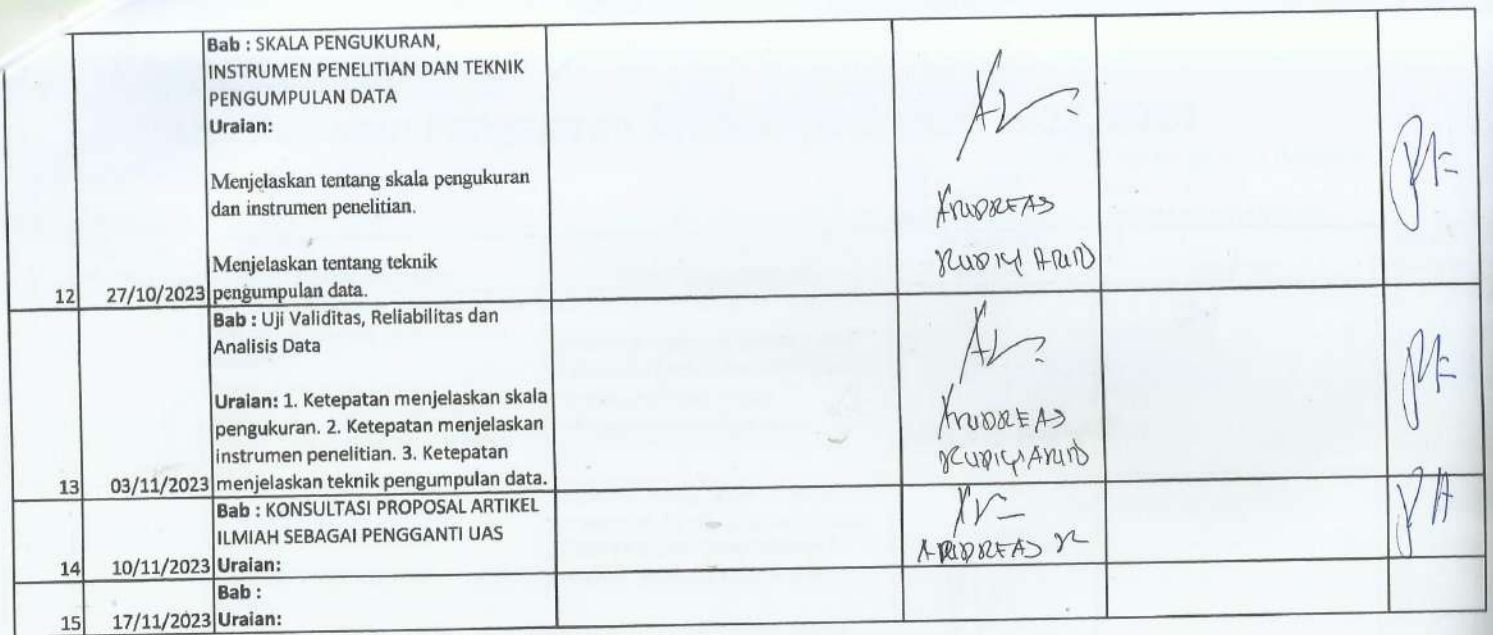 Bab : SKALA PENGUKURAN,
INSTRUMEN PENELITIAN DAN TEKNIK
PENGUMPULAN DATA
Uraian:
Menjelaskan tentang skala pengukuran
dan instrumen penelitian.
Menjelaskan tentang teknik
12 27/10/2023 pengumpulan data.
ANDREAS
Bab : Uji Validitas, Reliabilitas dan
Analisis Data
Uraian: 1. Ketepatan menjelaskan skala
pengukuran. 2. Ketepatan menjelaskan
instrumen penelitian. 3. Ketepatan
13 03/11/2023 menjelaskan teknik pengumpulan data.
ANDREAS
Bab : KONSULTASI PROPOSAL ARTIKEL
ILMIAH SEBAGAI PENGGANTI UAS
14 10/11/2023 Uraian:
ANDREAS R
Bab :
15 17/11/2023 Uraian: